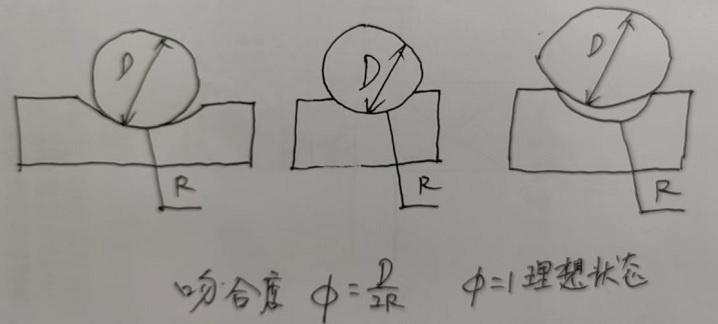 D D D
R R R
吻合度 φ=D/2R φ=1理想状态